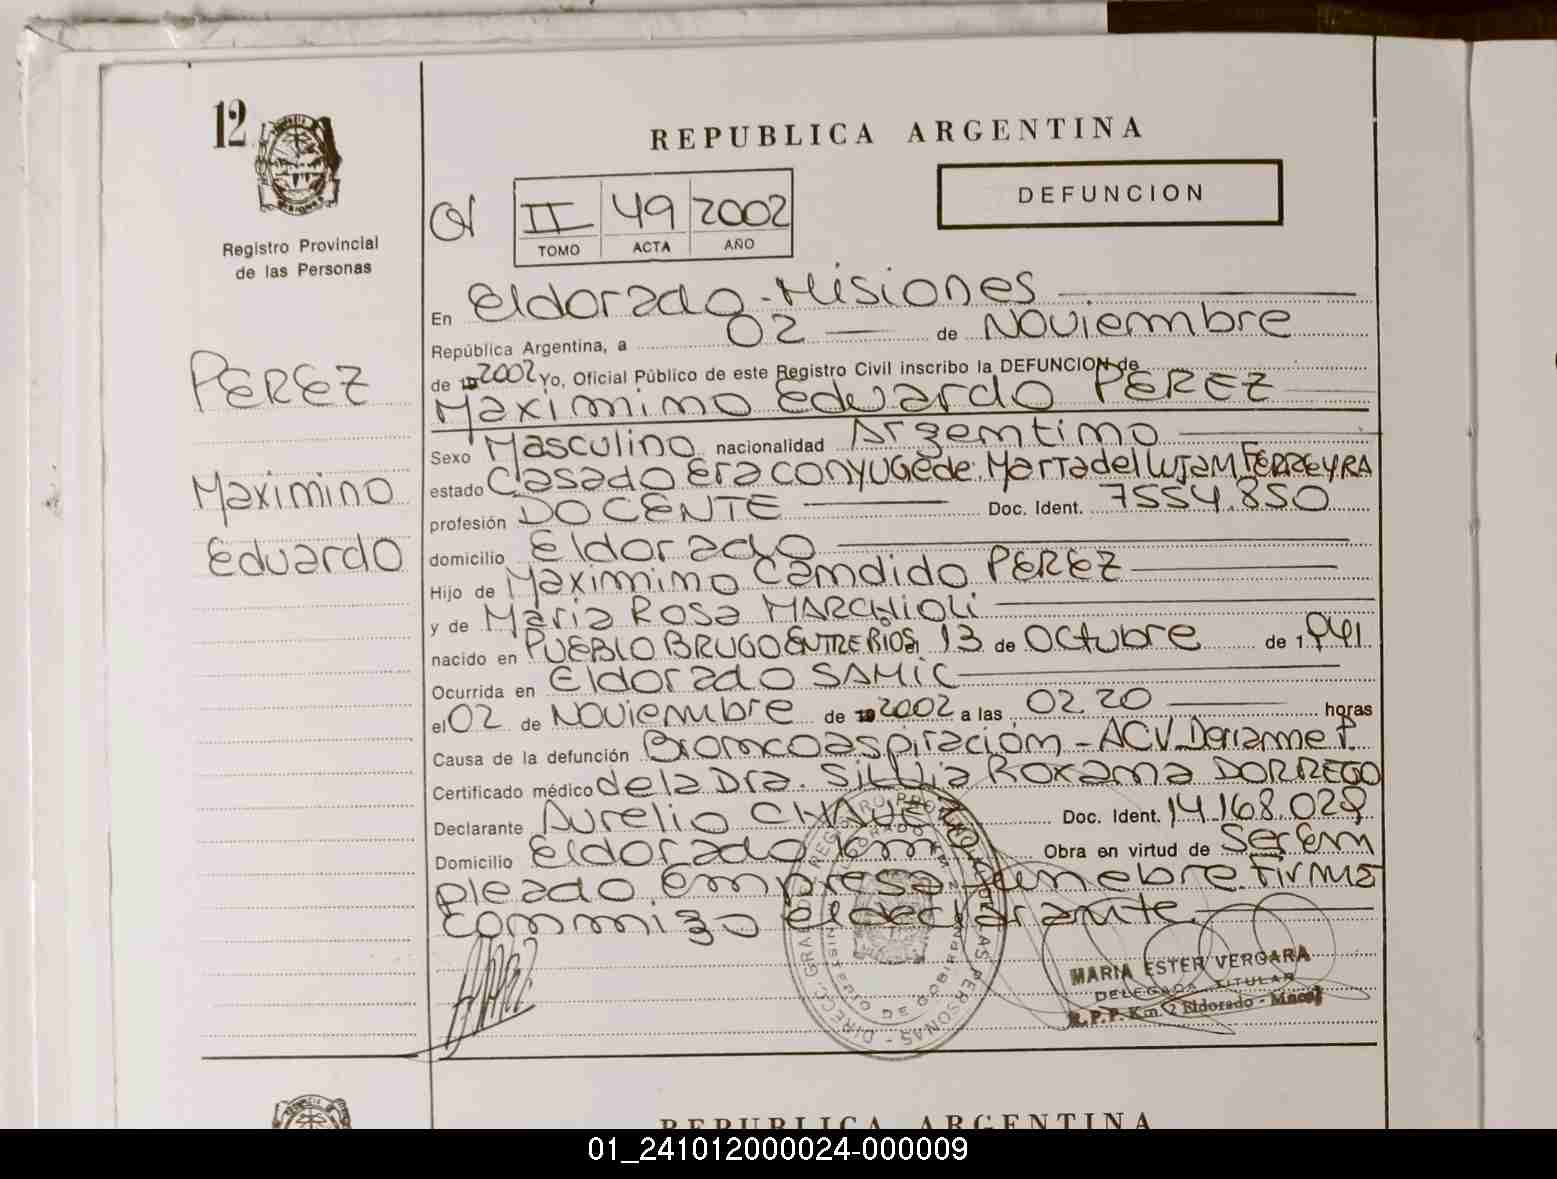 12
REPUBLICA ARGENTINA
DEFUNCION
II 49 2002
TOMO ACTA AÑO
Registro Provincial
de las Personas
En Eldorado - Misiones
República Argentina, a 02 de Noviembre
de 2002 Yo, Oficial Público de este Registro Civil inscribo la DEFUNCION de
Maximino Eduardo PEREZ
PEREZ
Maximino
Eduardo
Sexo Masculino nacionalidad Argentino
estado Casado Era conyuge de: Marta del Lujan FERREYRA
profesión DOCENTE Doc. Ident. 7554.850
domicilio Eldorado
Hijo de Maximino Candido PEREZ
y de Maria Rosa MARCHIOLI
nacido en PUEBLO BRUGO ENTRE RIOS, 13 de Octubre de 1941
Ocurrida en Eldorado SAMIC
el 02 de Noviembre de 2002 a las 02.20 horas
Causa de la defunción Broncoaspiración - ACV. Derrame P.
Certificado médico de la Dra. Silvia Roxana DORREGO
Declarante Aurelio CHAVEZ Doc. Ident. 14.168.028
Domicilio Eldorado km Obra en virtud de Ser em
pleado empresa funebre. Firma
conmigo el declarante.
MARIA ESTER VERGARA
DELEGADA TITULAR
R.P.P. Km. 2 Eldorado - Mnes.
REPUBLICA ARGENTINA
01_241012000024-000009